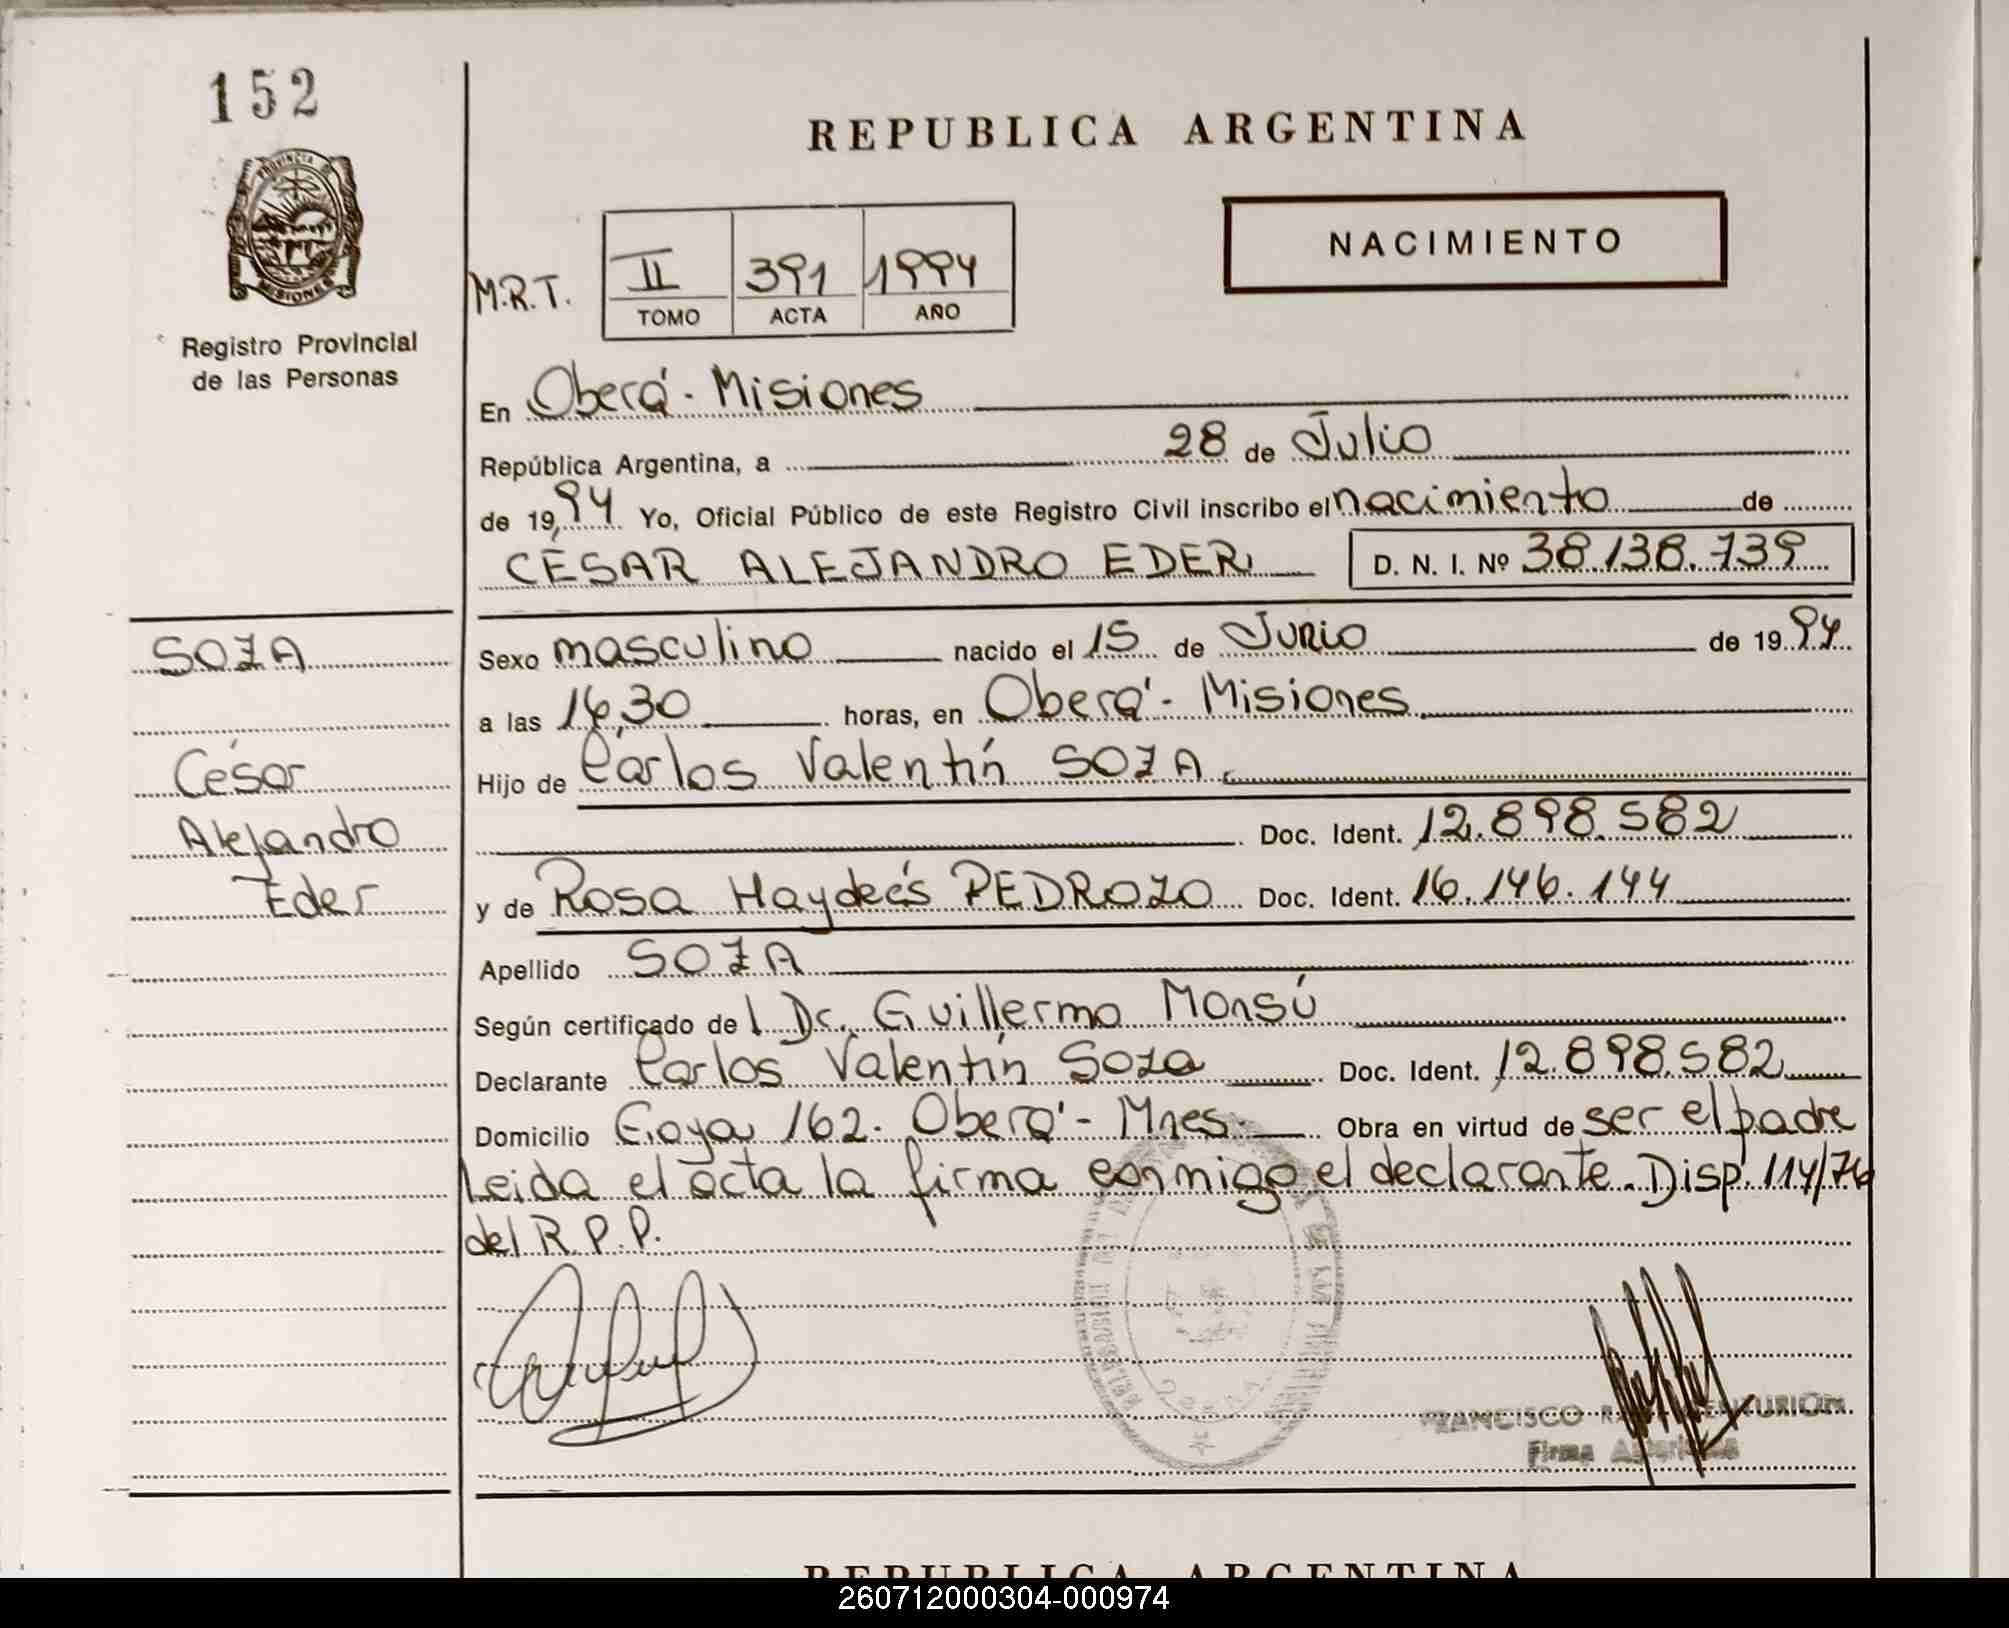 152
PROVINCIA
MISIONES
Registro Provincial
de las Personas
REPUBLICA ARGENTINA
NACIMIENTO
M.R.T.
II 391 1994
TOMO ACTA AÑO
En Oberá - Misiones
República Argentina, a 28 de Julio
de 19,94 Yo, Oficial Público de este Registro Civil inscribo el nacimiento de
CÉSAR ALEJANDRO EDER D. N. I. Nº 38.138.739
SOZA
César
Alejandro
Eder
Sexo masculino nacido el 15 de Junio de 19 94
a las 16,30 horas, en Oberá - Misiones
Hijo de Carlos Valentín SOZA
Doc. Ident. 12.898.582
y de Rosa Haydeés PEDROZO Doc. Ident. 16.146.144
Apellido SOZA
Según certificado de l Dr. Guillermo Monsú
Declarante Carlos Valentín Soza Doc. Ident. 12.898.582
Domicilio Goya 162. Oberá - Mnes. Obra en virtud de ser el padre
Leida el acta la firma conmigo el declarante. Disp. 114/76
del R.P.P.
FRANCISCO CENTURION
Firma Autorizada
REPUBLICA ARGENTINA
260712000304-000974